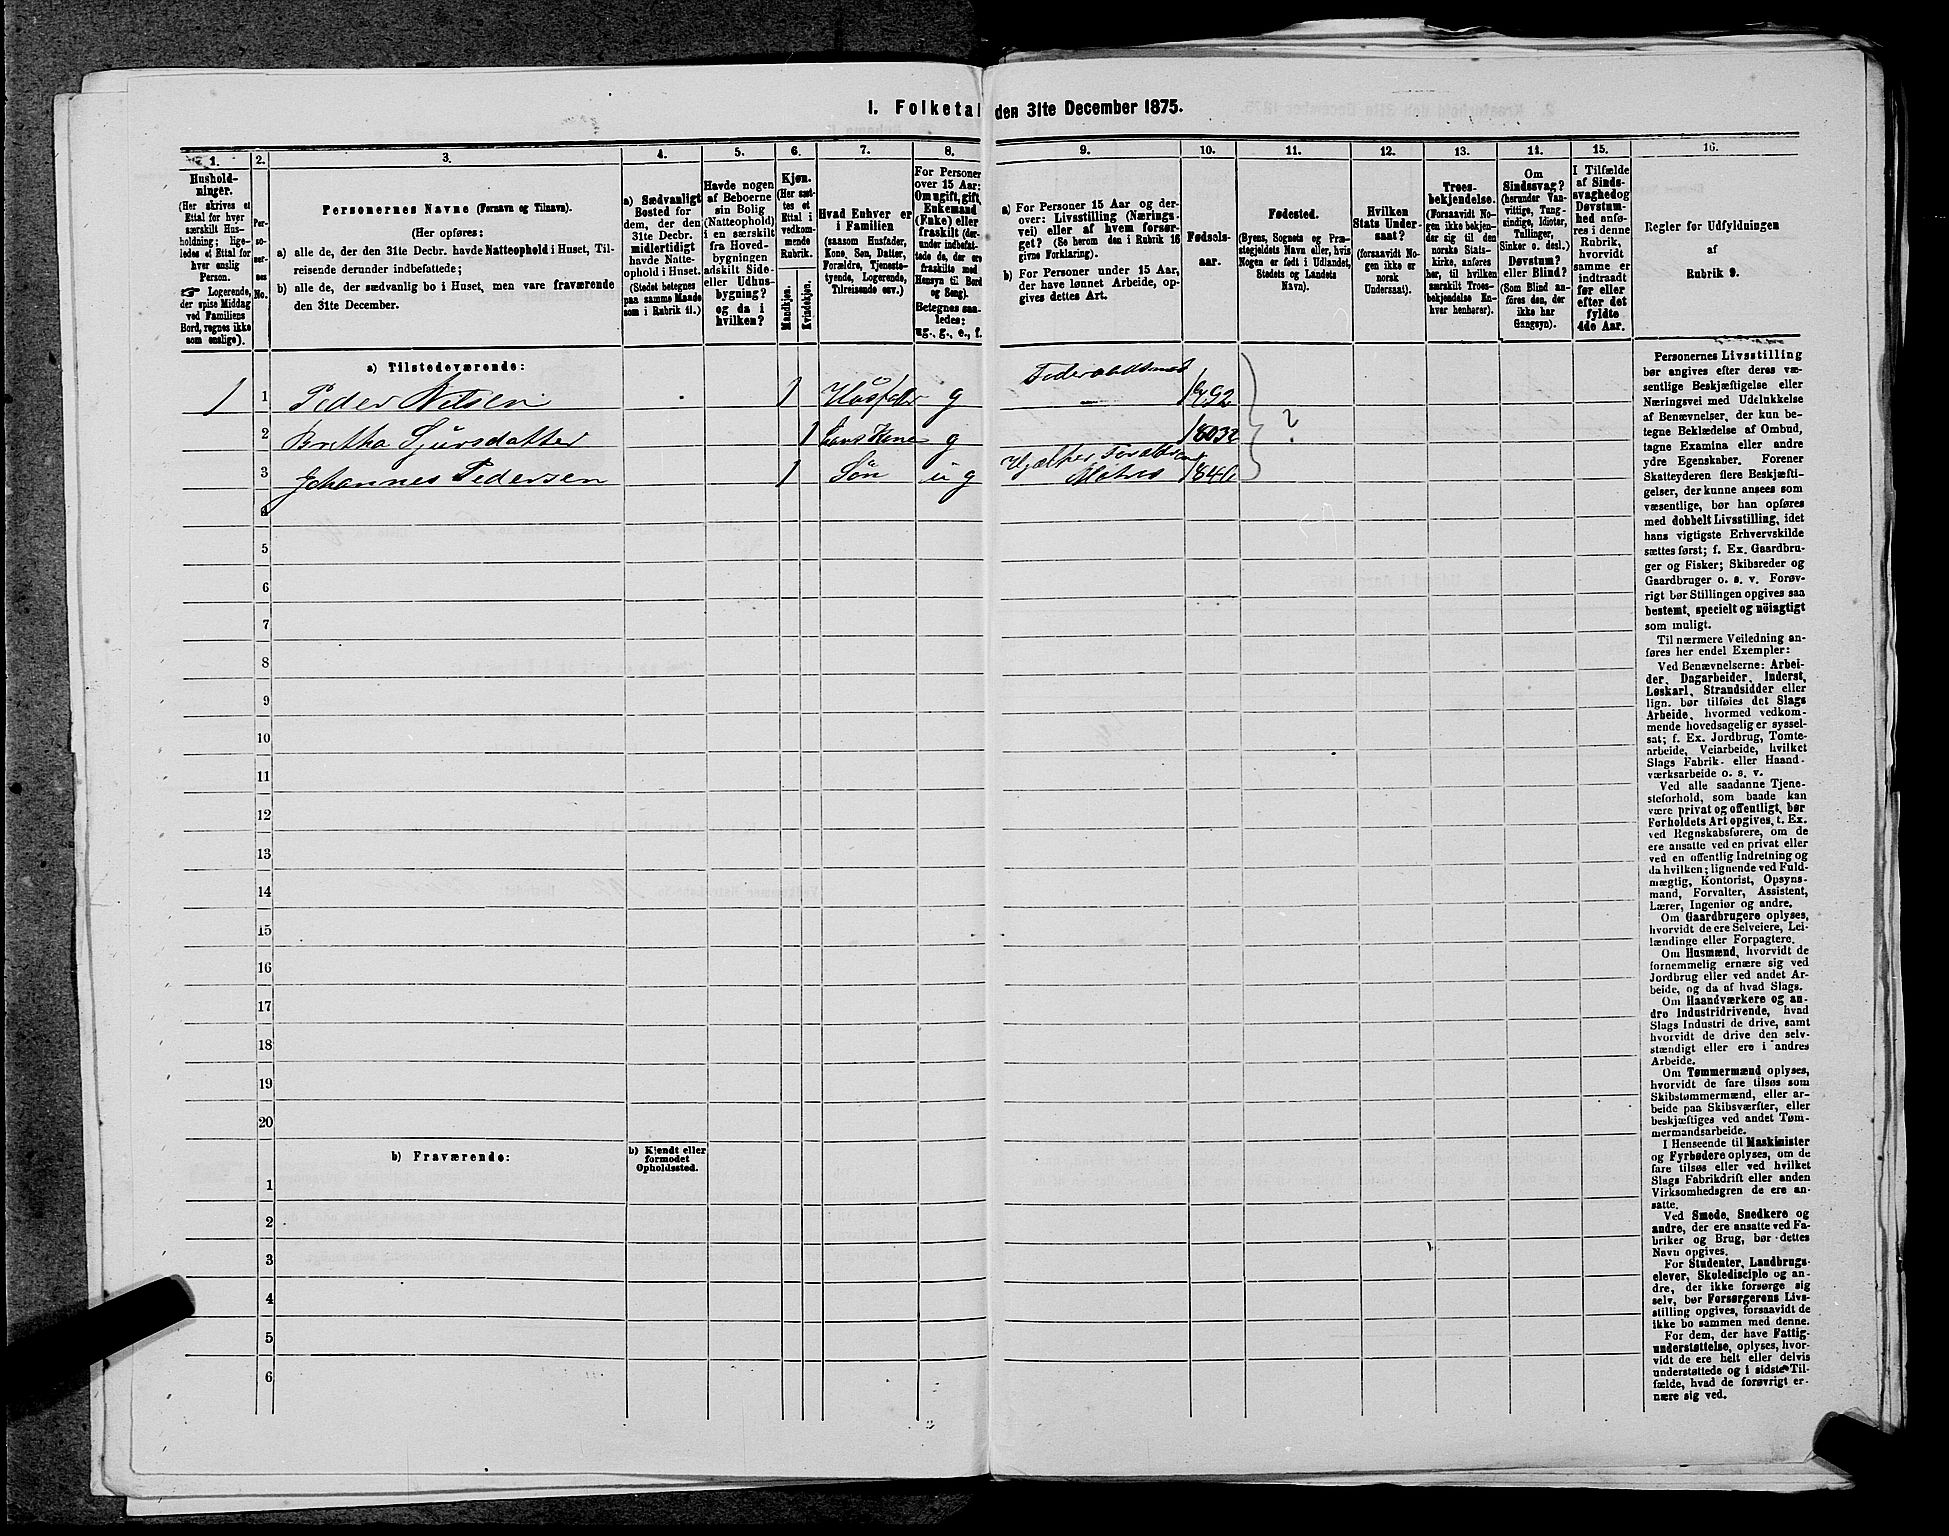 I. Folketal den 31te December 1875.
1.
2.
3.
4.
5.
6.
7.
8.
9.
10.
11.
12.
13.
14.
15.
16.
Hushold-
ninger.
(Her skrives et
Ettal for hver
særskilt Hus-
holdning; lige-
ledes et Ettal for
hver enslig
Person.
☞ Logerende,
der spise Middag
ved Familiens
Bord, regnes ikke
som enslige).
Per-
so-
ner-
nes
No.
Personernes Navne (Fornavn og Tilnavn).
(Her opføres:
a) alle de, der den 31te Decbr. havde Natteophold i Huset, Til-
reisende derunder indbefattede;
b) alle de, der sædvanlig bo i Huset, men vare fraværende
den 31te December.
a) Sædvanligt
Bosted for
dem, der den
31te Decbr.
midlertidigt
havde Natte-
ophold i Huset.
(Stedet betegnes
paa samme Maade
som i Rubrik 11.)
Havde nogen
af Beboerne
sin Bolig
(Natteophold)
i en særskilt
fra Hoved-
bygningen
adskilt Side-
eller Udhus-
bygning?
og da i
hvilken?
Kjøn.
(Her sæt-
tes et
Ettal i
vedkom-
mende
Rubrik.
Mandkjøn.
Kvindekjøn.
Hvad Enhver er
i Familien
(saasom Husfader,
Kone, Søn, Datter,
Forældre, Tjeneste-
tyende, Logerende,
Tilreisende osv.)
For Personer
over 15 Aar:
Om ugift, gift,
Enkemand
(Enke) eller
fraskilt (der-
under indbefat-
tede de, der ere
fraskilte med
Hensyn til Bord
og Seng).
Betegnes saa-
ledes:
ug., g., e., f.
a) For Personer 15 Aar og der-
over: Livsstilling (Nærings-
vei) eller af hvem forsør-
get? (Se herom den i Rubrik 16
givne Forklaring).
b) For Personer under 15 Aar,
der have lønnet Arbeide, op-
gives dettes Art.
Fødsels-
aar.
Fødested.
(Byens, Sognets og Præ-
stegjeldets Navn eller, hvis
Nogen er født i Udlandet,
Stedets og Landets
Navn).
Hvilken
Stats Under-
saat?
(forsaavidt No-
gen ikke er
norsk
Undersaat).
Troes-
bekjendelse.
(Forsaavidt No-
gen ikke bekjen-
der sig til den
norske Stats-
kirke, anføres
her, til hvilken
særskilt Troes-
bekjendelse En-
hver henhører).
Om
Sindssvag?
(herunder Van-
vittige, Tung-
sindige, Idioter,
Tullinger,
Sinker o. desl.)
Døvstum?
eller Blind?
(Som Blind an-
føres den, der
ikke har
Gangsyn).
I Tilfælde
af Sinds-
svaghed og
Døvstum-
hed anfø-
res i denne
Rubrik,
hvorvidt
samme er
indtraadt
før eller
efter det
fyldte
4de Aar.
Regler for Udfyldningen
af
Rubrik 9.
a) Tilstedeværende:
1 1 Peder Nilsen 1 Husfader g 1792
2 Brita Sjursdatter 1 hans Kone g 1803 ?
3 Johannes Pedersen 1 Søn ug 1846
4
5
6
7
8
9
10
11
12
13
14
15
16
17
18
19
20
b) Fraværende:
b) Kjendt eller
formodet
Opholdssted.
1
2
3
4
5
6
Personernes Livsstilling
bør angives efter deres væ-
sentlige Beskjæftigelse eller
Næringsvei med Udelukkelse
af Benævnelser, der kun be-
tegne Beklædelse af Ombud,
tagne Examina eller andre
ydre Egenskaber. Forener
Skatteyderen flere Beskjæfti-
gelser, der kunne ansees som
væsentlige, bør han opføres
med dobbelt Livsstilling, idet
hans vigtigste Erhvervskilde
sættes først; f. Ex. Gaardbru-
ger og Fisker; Skibsreder og
Gaardbruger o. s. v. Forøv-
rigt bør Stillingen opgives saa
bestemt, specielt og nöiagtigt
som muligt.
Til nærmere Veiledning an-
føres her endel Exempler:
Ved Benævnelserne: Arbei-
der, Dagarbeider, Inderst,
Løskarl, Strandsidder eller
lign. bør tilføies det Slags
Arbeide, hvormed vedkom-
mende hovedsagelig er syssel-
sat; f. Ex. Jordbrug, Tomte-
arbeide, Veiarbeide, hvilket
Slags Fabrik- eller Haand-
værksarbeide o. s. v.
Ved alle saadanne Tjene-
steforhold, som baade kan
være privat og offentligt, bør
Forholdets Art opgives, t. Ex.
ved Regnskabsførere, om de
ere ansatte ved en privat eller
ved en offentlig Indretning og
da hvilken; lignende ved Fuld-
mægtig, Kontorist, Opsyns-
mand, Forvalter, Assistent,
Lærer, Ingeniør og andre.
Om Gaardbrugere oplyses,
hvorvidt de ere Selveiere, Lei-
lændinge eller Forpagtere.
Om Husmænd, hvorvidt de
fornemmelig ernære sig ved
Jordbrug eller ved andet Ar-
beide, og da af hvad Slags.
Om Haandværkere og an-
dre Industridrivende, hvad
Slags Industri de drive, samt
hvorvidt de drive den selv-
stændigt eller ere i andres
Arbeide.
Om Tømmermænd oplyses,
hvorvidt de fare tilsøs som
Skibstømmermænd, eller ar-
beide paa Skibsværfter, eller
beskjæftiges ved andet Tøm-
mermandsarbeide.
I Henseende til Maskinister
og Fyrbødere oplyses, om de
fare tilsøs eller ved hvilket
Slags Fabrikdrift eller anden
Virksomhedsgren de ere an-
satte.
Ved Smede, Snedkere og
andre, der ere ansatte ved Fa-
briker og Brug, bør dettes
Navn opgives.
For Studenter, Landbrugs-
elever, Skoledisciple og an-
dre, der ikke forsørge sig
selv, bør Forsørgerens Livs-
stilling opgives, forsaavidt de
ikke bo sammen med denne.
For dem, der have Fattig-
understøttelse, oplyses, hvor-
vidt de ere helt eller delvis
understøttede og i sidste Til-
fælde, hvad de forøvrigt er-
nære sig ved.